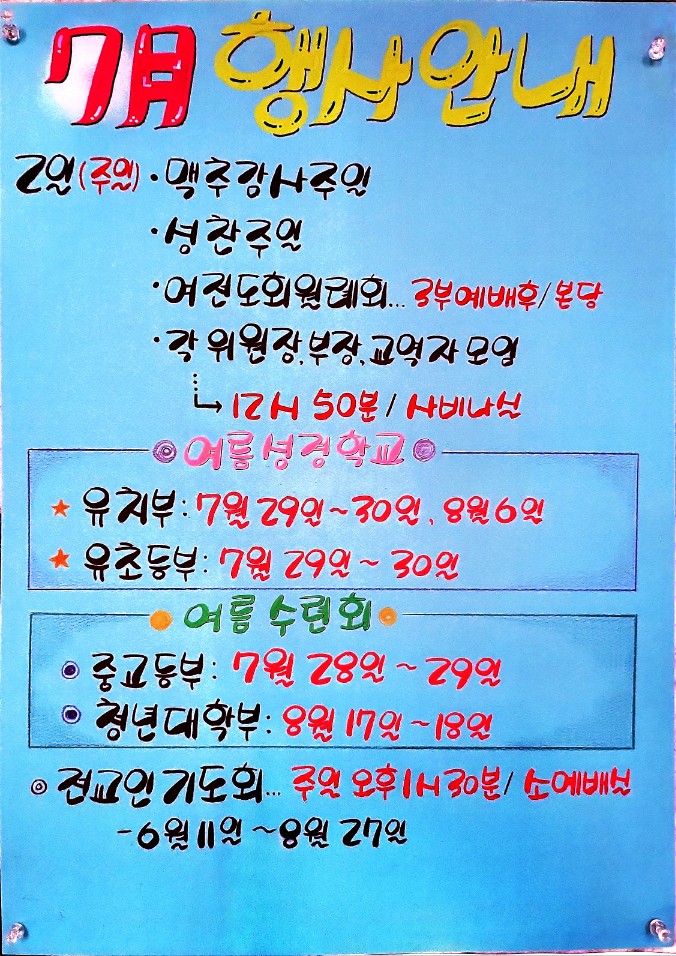 7月 행사안내
2일(주일) · 맥추감사주일
· 성찬주일
· 여전도회월례회... 3부예배후/본당
· 각 위원장,부장,교역자모임
12시 50분/사비나실
여름성경학교
유치부: 7월 29일~30일, 8월 6일
유초등부: 7월 29일~30일
여름 수련회
중고등부: 7월 28일~29일
청년대학부: 8월 17일~18일
전교인기도회... 주일 오후1시30분/소예배실
-6월 11일~8월 27일